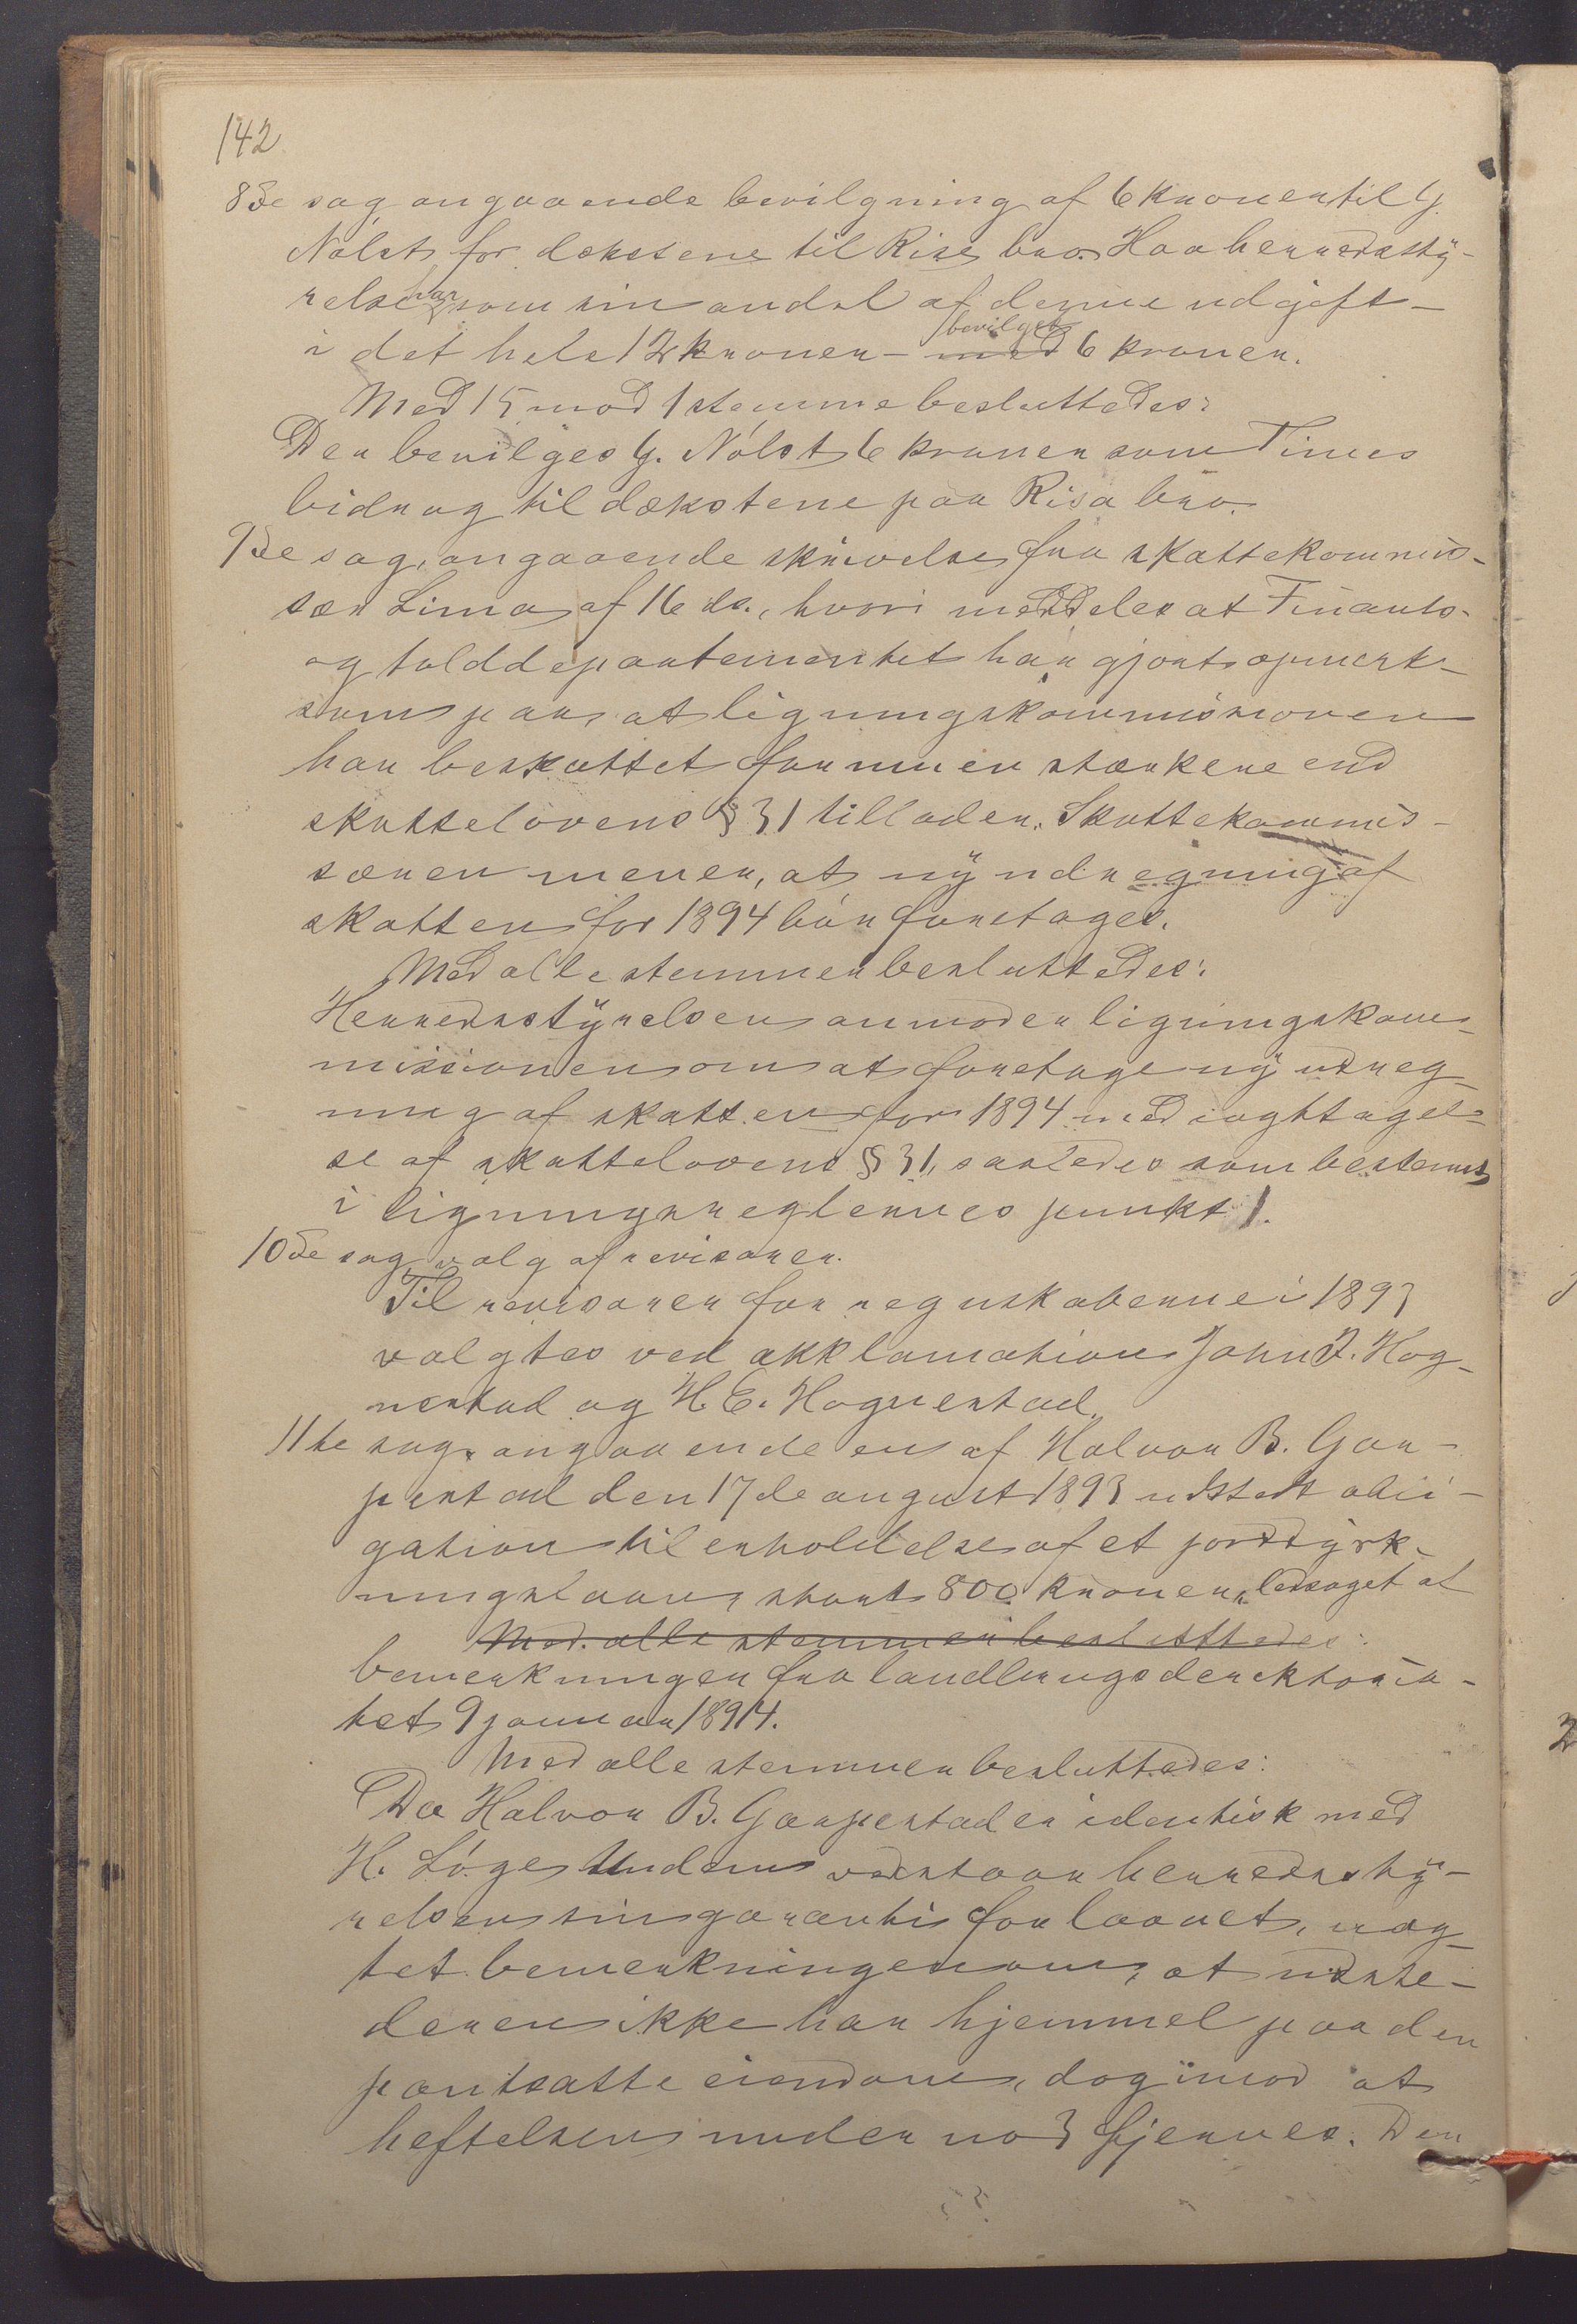 142
8de sag angaaende bevilgning af 6 kroner til G.
Nólst for dækstene til Rise bro. Haa herredssty-
relse har som sin andel af denne udgift -
i det hele 12 kroner - med bevilget 6 kroner.
Med 15 mod 1 stemme besluttedes:
Der bevilges G. Nólst 6 kroner som Times
bidrag til dækstene paa Risa bro.
9de sag, angaaende skrivelse fra skattekommis-
sær Lima af 16 ds., hvori meddeles at Finants-
og tolddepartementet har gjort opmerk-
som paa, at ligningskommissionen
har beskattet formuen stærkere end
skattelovens § 31 tillader. Skattekommis-
særen mener, at ny udregning af
skatten for 1894 bór foretages.
Med alle stemmer besluttedes:
Herredsstyrelsen anmoder ligningskom-
missionen om at foretage ny udreg-
ning af skatten for 1894 med iagttagel-
se af skattelovens § 31, saaledes som bestemt
i ligningsreglernes punkt 1.
10de sag valg af revisorer.
Til revisorer for regnskaberne i 1893
valgtes ved akklamation John J. Hog-
nestad og H. E. Hognestad.
11te sag. angaaende en af Halvor B. Gar-
pestad den 17de august 1893 udstedt obli-
gation til erholdelse af et jorddyrk-
ningslaan, stort 800 kroner, ledsaget af
Med alle stemmer besluttedes:
bemerkninger fra landbrugsdirektoria-
tet 9 januar 1894.
Med alle stemmer besluttedes:
Da Halvor B. Garpestad er identisk med
H. Lóge Undem vedstaar herredssty-
relsen sin garanti for laanet, uag-
tet bemerkningen om, at udste-
deren ikke har hjemmel paa den
pantsatte eiendom, dog imod at
heftelsen under no 3 fjernes. Den